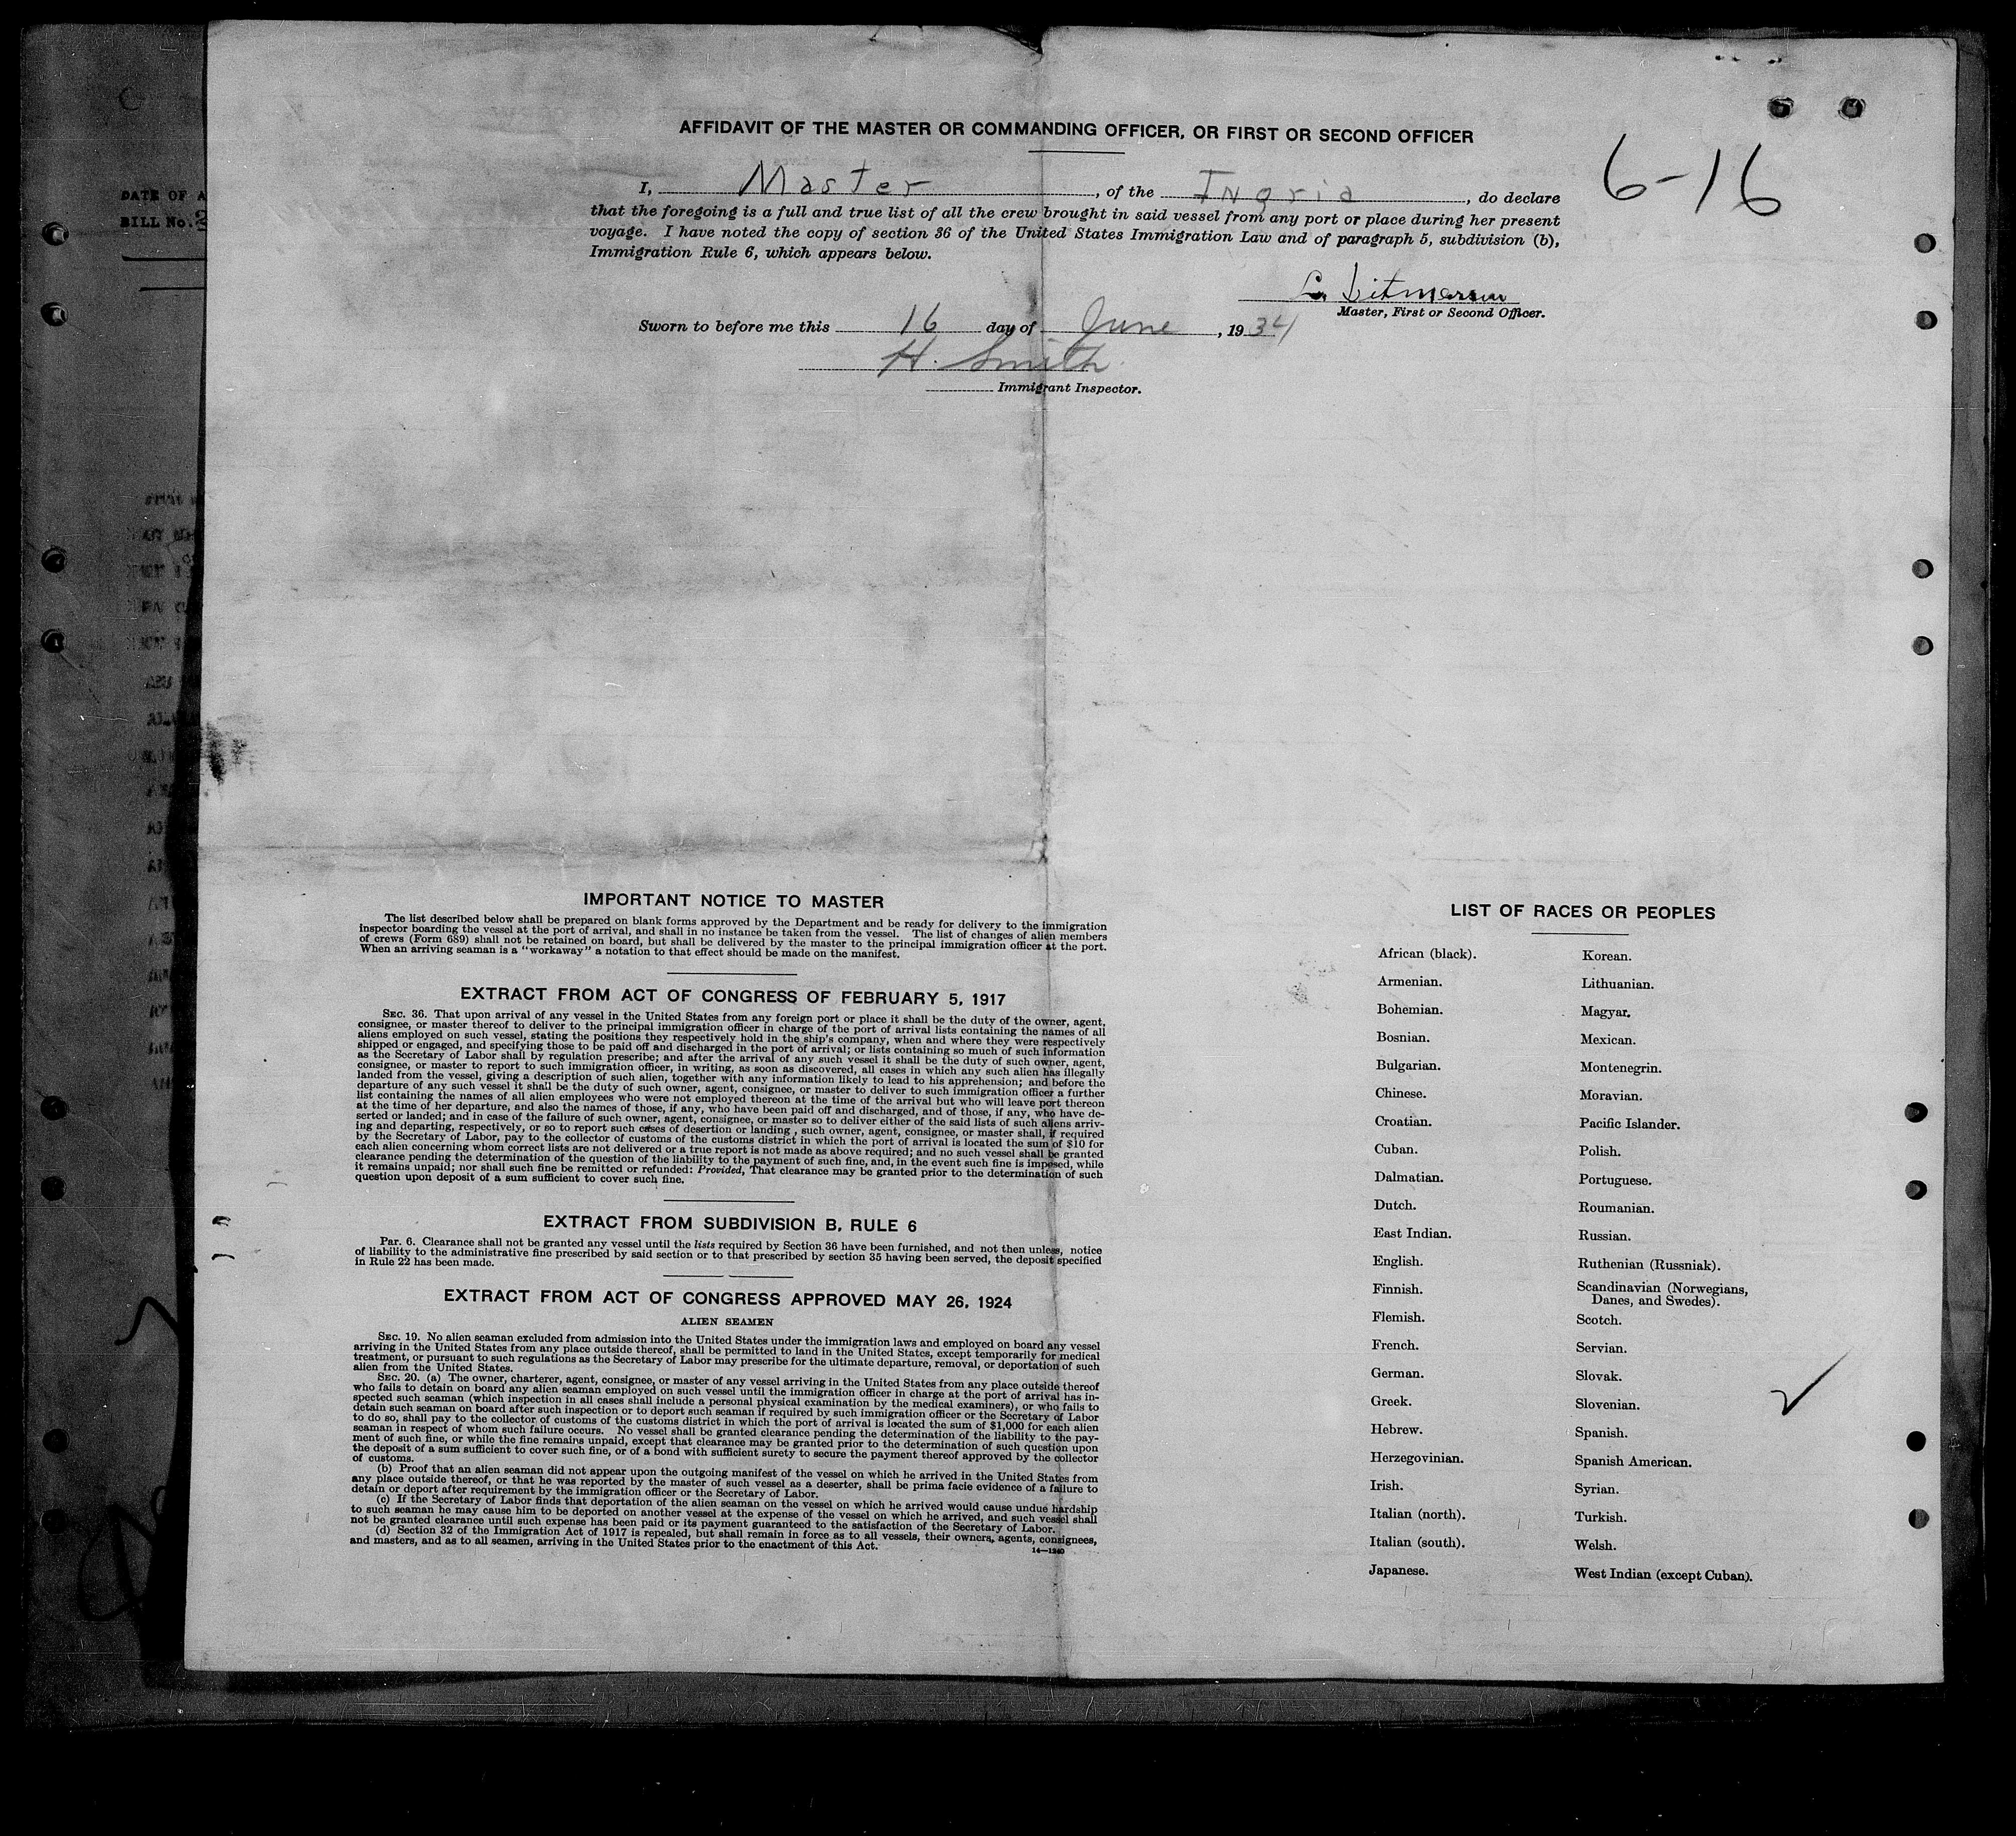 DATE OF A
BILL No.
AFFIDAVIT OF THE MASTER OR COMMANDING OFFICER, OR FIRST OR SECOND OFFICER
6-16
I, Master, of the Ingria, do declare
that the foregoing is a full and true list of all the crew brought in said vessel from any port or place during her present
voyage. I have noted the copy of section 36 of the United States Immigration Law and of paragraph 5, subdivision (b),
Immigration Rule 6, which appears below.
Master, First or Second Officer.
Sworn to before me this 16 day of June, 1934
H. Smith
Immigrant Inspector.
IMPORTANT NOTICE TO MASTER
The list described below shall be prepared on blank forms approved by the Department and be ready for delivery to the immigration
inspector boarding the vessel at the port of arrival, and shall in no instance be taken from the vessel. The list of changes of alien members
of crews (Form 689) shall not be retained on board, but shall be delivered by the master to the principal immigration officer at the port.
When an arriving seaman is a "workaway" a notation to that effect should be made on the manifest.
EXTRACT FROM ACT OF CONGRESS OF FEBRUARY 5, 1917
SEC. 36. That upon arrival of any vessel in the United States from any foreign port or place it shall be the duty of the owner, agent,
consignee, or master thereof to deliver to the principal immigration officer in charge of the port of arrival lists containing the names of all
aliens employed on such vessel, stating the positions they respectively hold in the ship's company, when and where they were respectively
shipped or engaged, and specifying those to be paid off and discharged in the port of arrival; or lists containing so much of such information
as the Secretary of Labor shall by regulation prescribe; and after the arrival of any such vessel it shall be the duty of such owner, agent,
consignee, or master to report to such immigration officer, in writing, as soon as discovered, all cases in which any such alien has illegally
landed from the vessel, giving a description of such alien, together with any information likely to lead to his apprehension; and before the
departure of any such vessel it shall be the duty of such owner, agent, consignee, or master to deliver to such immigration officer a further
list containing the names of all alien employees who were not employed thereon at the time of the arrival but who will leave port thereon
at the time of her departure, and also the names of those, if any, who have been paid off and discharged, and of those, if any, who have de-
serted or landed; and in case of the failure of such owner, agent, consignee, or master so to deliver either of the said lists of such aliens arriv-
ing and departing, respectively, or so to report such cases of desertion or landing, such owner, agent, consignee, or master shall, if required
by the Secretary of Labor, pay to the collector of customs of the customs district in which the port of arrival is located the sum of $10 for
each alien concerning whom correct lists are not delivered or a true report is not made as above required; and no such vessel shall be granted
clearance pending the determination of the question of the liability to the payment of such fine, and, in the event such fine is imposed, while
it remains unpaid; nor shall such fine be remitted or refunded: Provided, That clearance may be granted prior to the determination of such
question upon deposit of a sum sufficient to cover such fine.
EXTRACT FROM SUBDIVISION B, RULE 6
PAR. 6. Clearance shall not be granted any vessel until the lists required by Section 36 have been furnished, and not then unless, notice
of liability to the administrative fine prescribed by said section or to that prescribed by section 35 having been served, the deposit specified
in Rule 22 has been made.
EXTRACT FROM ACT OF CONGRESS APPROVED MAY 26, 1924
ALIEN SEAMEN
SEC. 19. No alien seaman excluded from admission into the United States under the immigration laws and employed on board any vessel
arriving in the United States from any place outside thereof, shall be permitted to land in the United States, except temporarily for medical
treatment, or pursuant to such regulations as the Secretary of Labor may prescribe for the ultimate departure, removal, or deportation of such
alien from the United States.
SEC. 20. (a) The owner, charterer, agent, consignee, or master of any vessel arriving in the United States from any place outside thereof
who fails to detain on board any alien seaman employed on such vessel until the immigration officer in charge at the port of arrival has in-
spected such seaman (which inspection in all cases shall include a personal physical examination by the medical examiners), or who fails to
detain such seaman on board after such inspection or to deport such seaman if required by such immigration officer or the Secretary of Labor
to do so, shall pay to the collector of customs of the customs district in which the port of arrival is located the sum of $1,000 for each alien
seaman in respect of whom such failure occurs. No vessel shall be granted clearance pending the determination of the liability to the pay-
ment of such fine, or while the fine remains unpaid, except that clearance may be granted prior to the determination of such question upon
the deposit of a sum sufficient to cover such fine, or of a bond with sufficient surety to secure the payment thereof approved by the collector
of customs.
(b) Proof that an alien seaman did not appear upon the outgoing manifest of the vessel on which he arrived in the United States from
any place outside thereof, or that he was reported by the master of such vessel as a deserter, shall be prima facie evidence of a failure to
detain or deport after requirement by the immigration officer or the Secretary of Labor.
(c) If the Secretary of Labor finds that deportation of the alien seaman on the vessel on which he arrived would cause undue hardship
to such seaman he may cause him to be deported on another vessel at the expense of the vessel on which he arrived, and such vessel shall
not be granted clearance until such expense has been paid or its payment guaranteed to the satisfaction of the Secretary of Labor.
(d) Section 32 of the Immigration Act of 1917 is repealed, but shall remain in force as to all vessels, their owners, agents, consignees,
and masters, and as to all seamen, arriving in the United States prior to the enactment of this Act.
14—1240
LIST OF RACES OR PEOPLES
African (black).
Armenian.
Bohemian.
Bosnian.
Bulgarian.
Chinese.
Croatian.
Cuban.
Dalmatian.
Dutch.
East Indian.
English.
Finnish.
Flemish.
French.
German.
Greek.
Hebrew.
Herzegovinian.
Irish.
Italian (north).
Italian (south).
Japanese.
Korean.
Lithuanian.
Magyar.
Mexican.
Montenegrin.
Moravian.
Pacific Islander.
Polish.
Portuguese.
Roumanian.
Russian.
Ruthenian (Russniak).
Scandinavian (Norwegians,
Danes, and Swedes).
Scotch.
Servian.
Slovak.
Slovenian.
Spanish.
Spanish American.
Syrian.
Turkish.
Welsh.
West Indian (except Cuban).